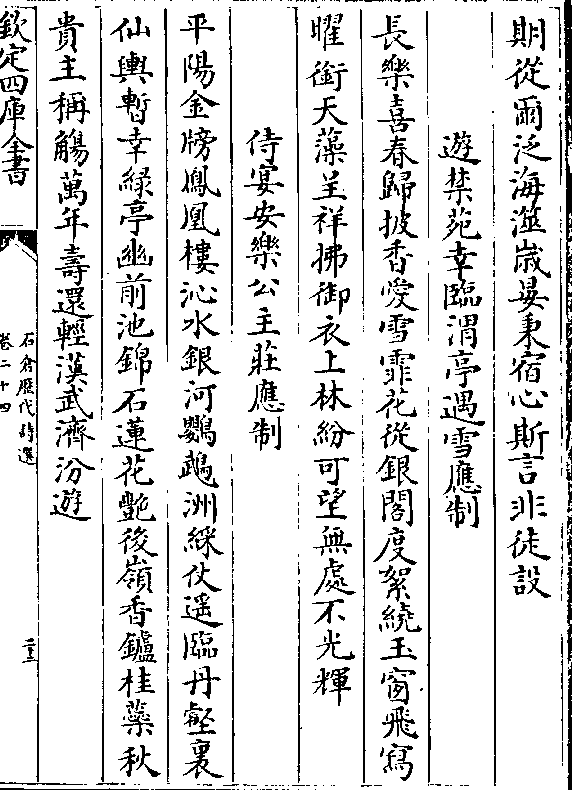 期從爾泛海澨歲晏秉宿心斯言非徒設
遊禁苑幸臨渭亭遇雪應制
長樂喜春歸披香愛雪霏花從銀閣度絮繞玉窗飛寫
曜銜天藻呈祥拂御衣上林紛可望無處不光輝
侍宴安樂公主莊應制
平陽金牓鳳凰樓沁水銀河鸚鵡洲綵仗遥臨丹壑裏
仙輿暫幸綠亭幽前池錦石蓮花艶後嶺香鑪桂蘂秋
貴主稱觴萬年壽還輕漢武濟汾遊
欽定四庫全書
石倉歷代詩選
卷二十四
二十三